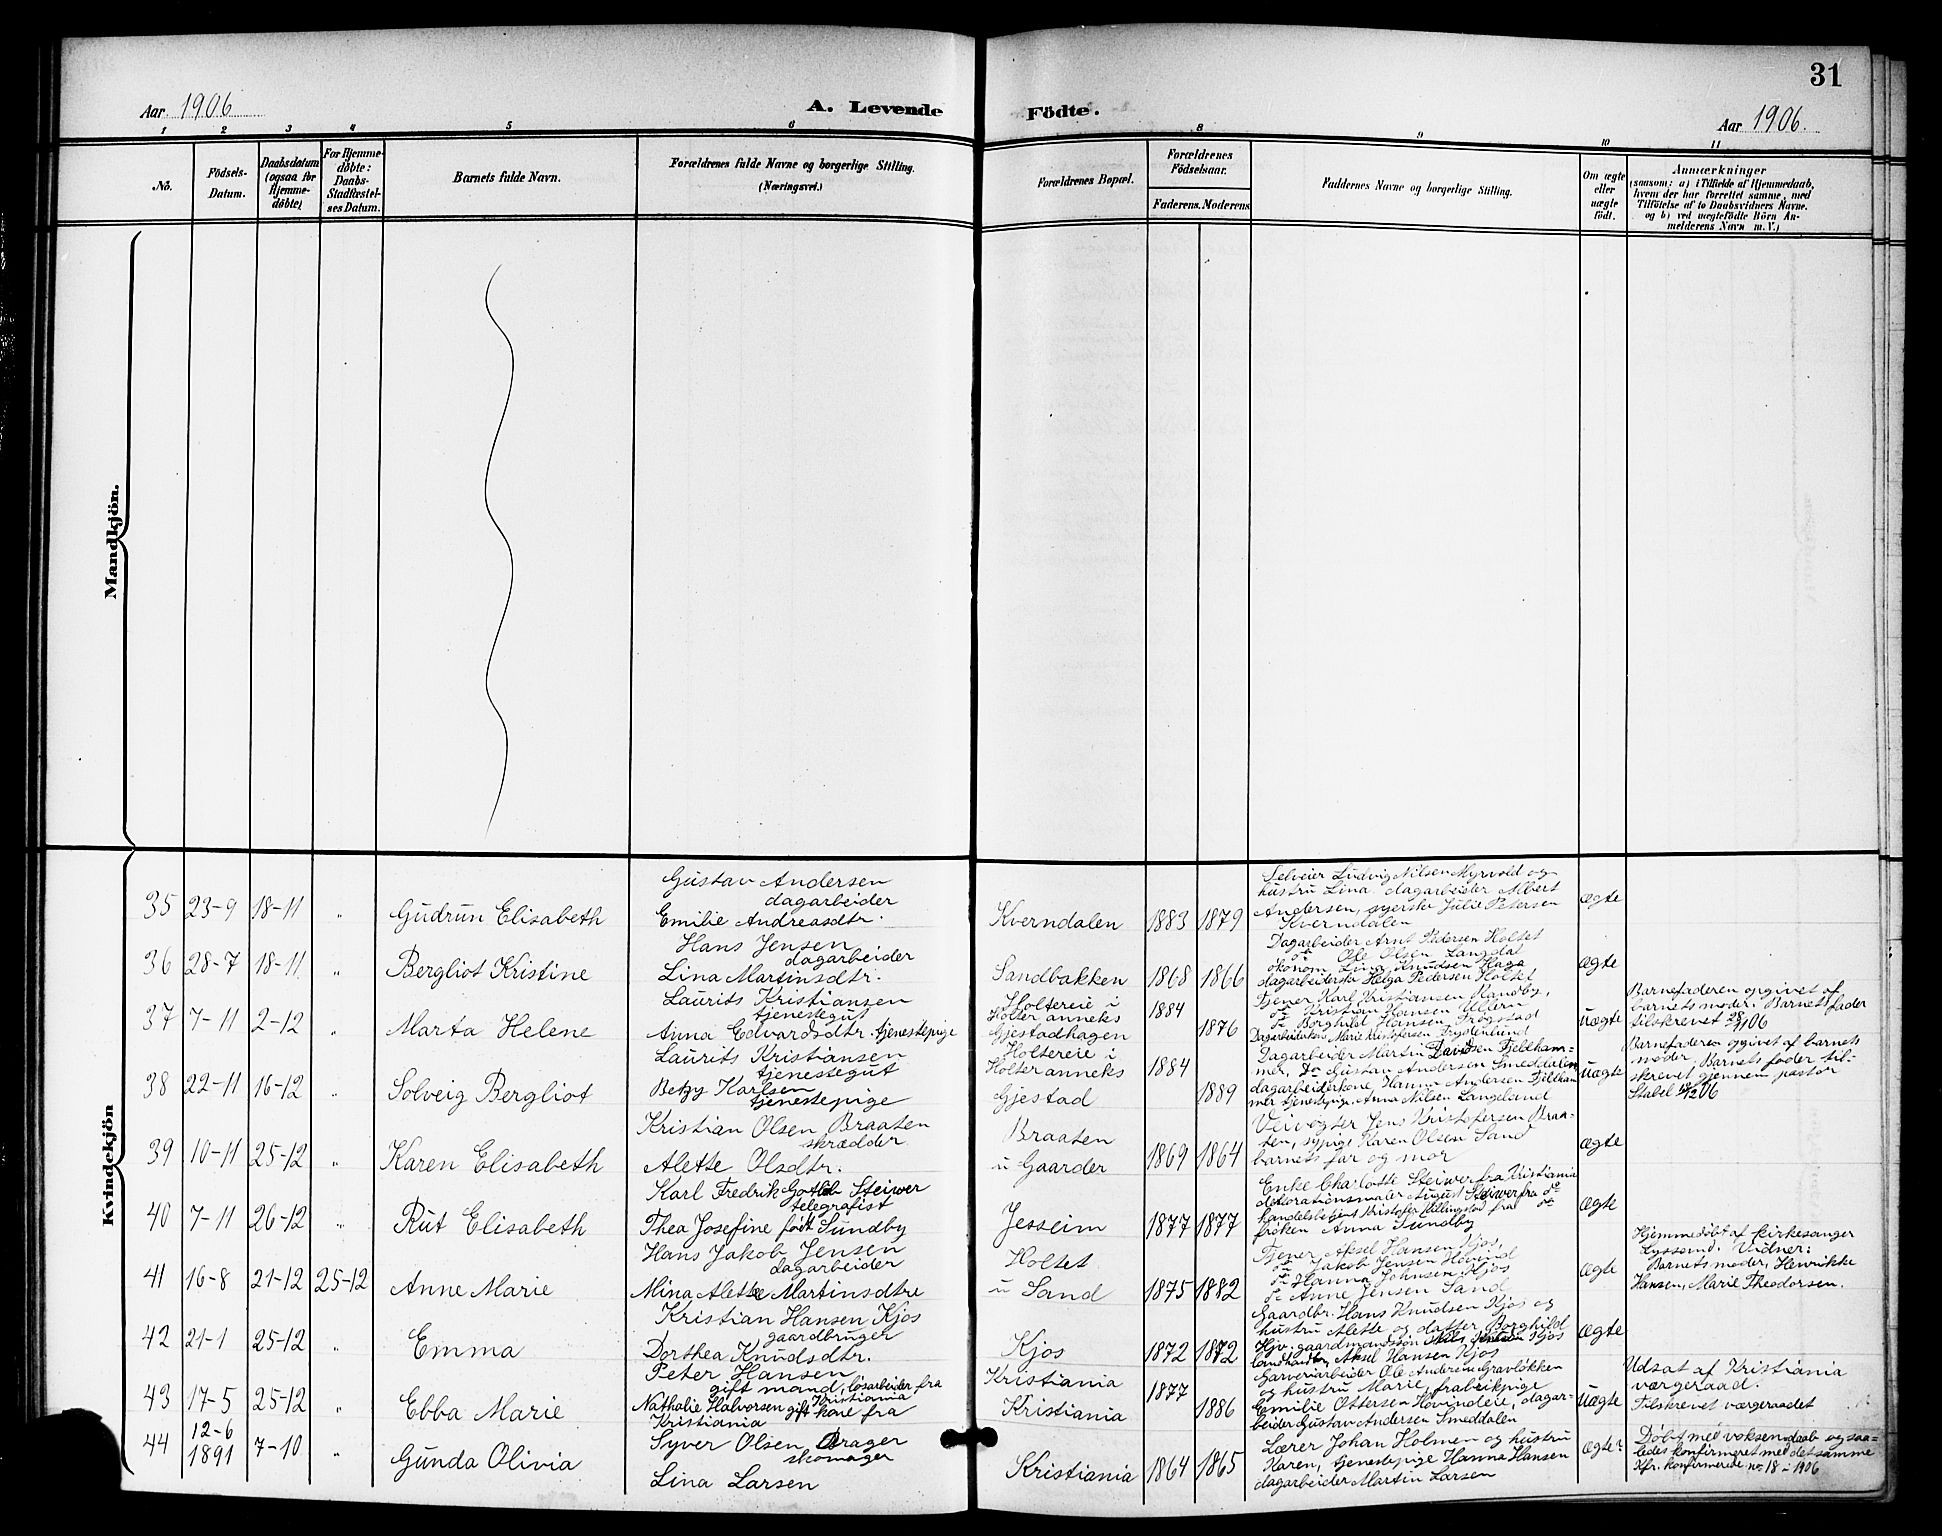 31
Aar 1906
A. Levende
Födte.
Aar 1906.
1 2 3 4 5 6 8 9 10 11
No.
Födsels-
Datum.
Daabsdatum
(ogsaa for
Hjemme-
döbte)
For Hjemme-
döbte:
Daabs-
Stadfæstel-
ses Datum.
Barnets fulde Navn.
Forældrenes fulde Navne og borgerlige Stilling.
(Næringsvei.)
Forældrenes Bopæl.
Forældrenes
Födselsaar.
Faderens. Moderens
Faddernes Navne og borgerlige Stilling.
Om ægte
eller
uægte
födt.
Anmærkninger
(saasom: a) i Tilfælde af Hjemmedaab,
hvem der har forrettet samme, med
Tilföielse af to Daabsvidners Navne.
og b) ved uægtefödte Börn An-
melderens Navn m. V.)
Mandkjön.
Kvindekjön
35 23-9 18-11 „ Gudrun Elisabeth
Gustav Andersen
dagarbeider
Emilie Andreasdtr.
Kverndalen 1883 1879
Selveier Ludvig Nilsen Myrvold og
hustru Lina, dagarbeider Albert
Andersen, syerske Julie Petersen
Kverndalen
ægte
36 28-7 18-11 „ Bergliot Kristine
Hans Jensen
dagarbeider
Lina Martinsdtr.
Sandbakken 1868 1866
Dagarbeider Arnt Pedersen Holtet
do Ole Olsen Langdal
økonom Lina Knudsen Haga
dagarbeiderske Helga Pedersen Holtet
ægte
37 7-11 2-12 „ Marta Helene
Laurits Kristiansen
tjenestegut
Anna Edvardsdtr. tjenestepige
Holtereie i
Holter anneks
Gjestadhagen
1884 1876
Tjener Karl Kristiansen Randby,
do Kristian Hansen Ullern
do Borghild Hansen Frogstad
Marie Kristofersen Frydenlund
uægte
Barnefaderen opgivet af
barnets moder. Barnets fader
tilskrevet 28/11 06
38 22-11 16-12 „ Solveig Bergliot
Laurits Kristiansen
tjenestegut
Betzy Karlsen
tjenestepige
Holtereie i
Holter anneks
Gjestad
1884 1889
Dagarbeider Martin Davidsen Fjeldham-
mer, Do Gustav Andersen Smeddalen
dagarbeiderkone, Hanna Andersen Fjeldham
mer tjenestepige. Anna Nilsen Langeland
uægte
Barnefaderen opgivet af barnets
moder. Barnets fader til-
skrevet gjennem pastor
Stabel 06
39 10-11 25-12 „ Karen Elisabeth
Kristian Olsen Braaten
skrædder
Alette Olsdtr.
Braaten
u Gaarder
1869 1864
Veivogter Jens Kristofersen Braa-
ten, sypige Karen Olsen Sand
barnets far og mor
ægte
40 7-11 26-12 „ Rut Elisabeth
Karl Fredrik Gotlob Steiwer
telegrafist
Thea Josefine født Sundby
Jesseim 1877 1877
Enke Charlotte Steiwer fra Kristiania
dekorationsmaler August Steiwer fra do
handelsbetjent Kristofer Killingstad fra do
frøken Anna Sundby
ægte
41 16-8 21-12 25-12 Anne Marie
Hans Jakob Jensen
dagarbeider
Mina Alette Martinsdtre
Holtet
u Sand
1875 1882
Tjener, Aksel Hansen Kjos,
do Jakob Jensen Hovind
do Hanna Johnsen Kjos
do Anne Jensen Sand
ægte
Hjemmedøbt af kirkesanger
Lyssand. Vidner:
Barnets moder, Henrikke
Hansen, Marie Theodorsen.
42 21-1 25-12 „ Emma
Kristian Hansen Kjos
gaardbruger
Dorthea Knudsdtr.
Kjos 1872 1872
Gaardbr. Hans Knudsen Kjos og
hustru Alette og datter Borghild
Hjv. gaardmandssøn Kjos
Aksel Hansen Kjos
ægte
43 17-5 25-12 „ Ebba Marie
Peter Hansen
gift mand, løsarbeider fra
Kristiania
Nathalie Halvorsen gift kone fra
Kristiania
Kristiania
Kristiania
1877 1886
Garveriarbeider Ole Andersen Gravløkken
og hustru Marie, frabrikpige
Emilie Ottersen Hovindeie, dagar-
beider Gustav Andersen Smeddalen
uægte
Udsat af Kristiania
værgeraad.
Tilskrevet værgeraadet
44 12-6
1891 7-10 „ Gunda Olivia
Syver Olsen Brager
skomager
Lina Larsen
Kristiania 1864 1865
Lærer Johan Holmen og hustru
Karen, tjenestepige Hanna Hansen
dagarbeider Martin Larsen
ægte?
Døbt med voksendaab og saa-
ledes konfirmeret med det samme
Kfr. konfirmerede no 18 - 1906